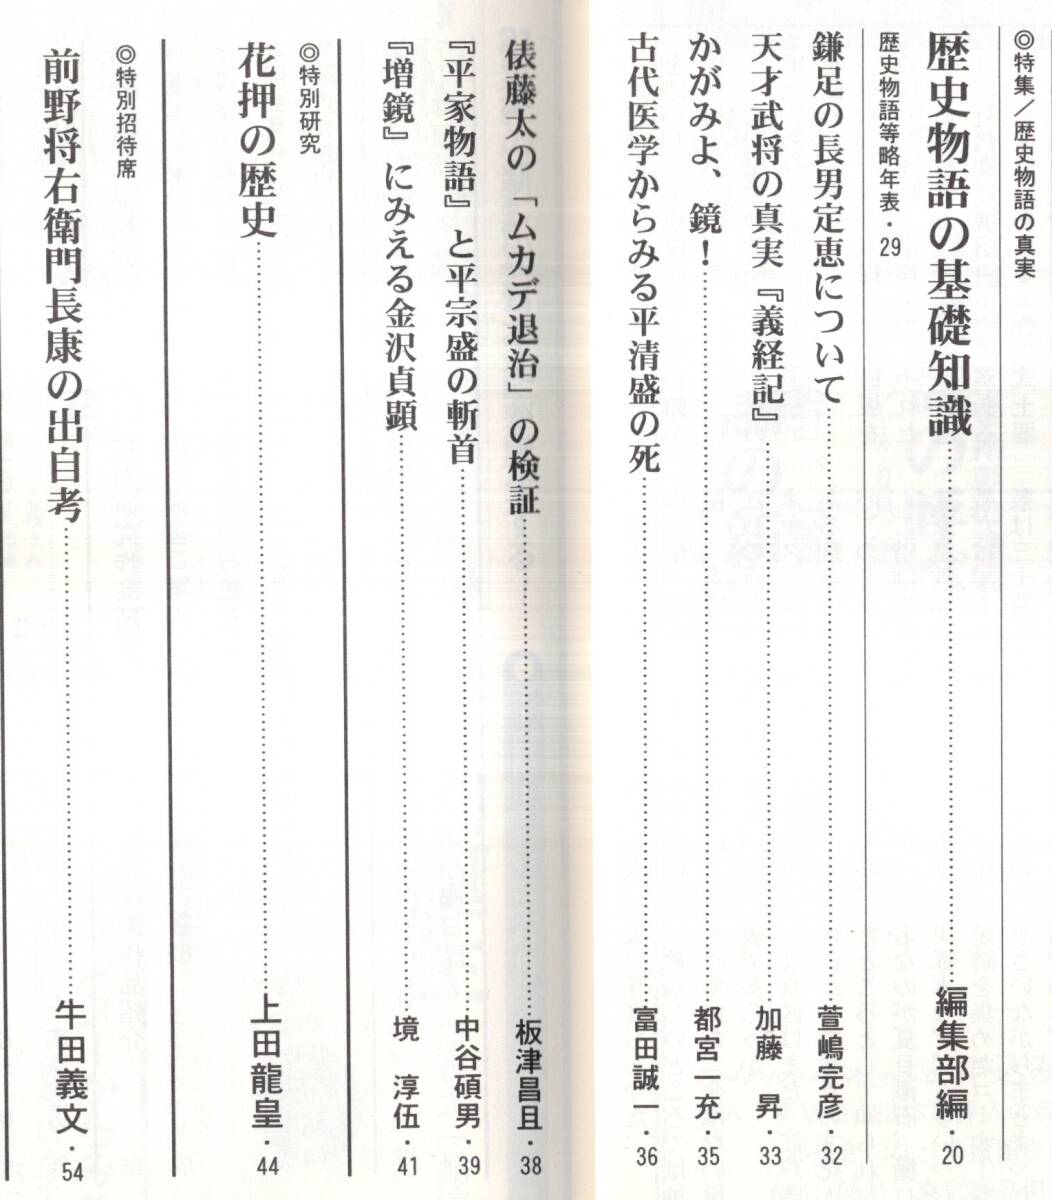 ◎特集／歴史物語の真実
歴史物語の基礎知識……編集部編・20
歴史物語等略年表・29
鎌足の長男定恵について……萱嶋完彦・32
天才武将の真実『義経記』……加藤　昇・33
かがみよ、鏡！……都宮一充・35
古代医学からみる平清盛の死……富田誠一・36
俵藤太の「ムカデ退治」の検証……板津昌且・38
『平家物語』と平宗盛の斬首……中谷碩男・39
『増鏡』にみえる金沢貞顕……境　淳伍・41
◎特別研究
花押の歴史……上田龍皇・44
◎特別招待席
前野将右衛門長康の出自考……牛田義文・54